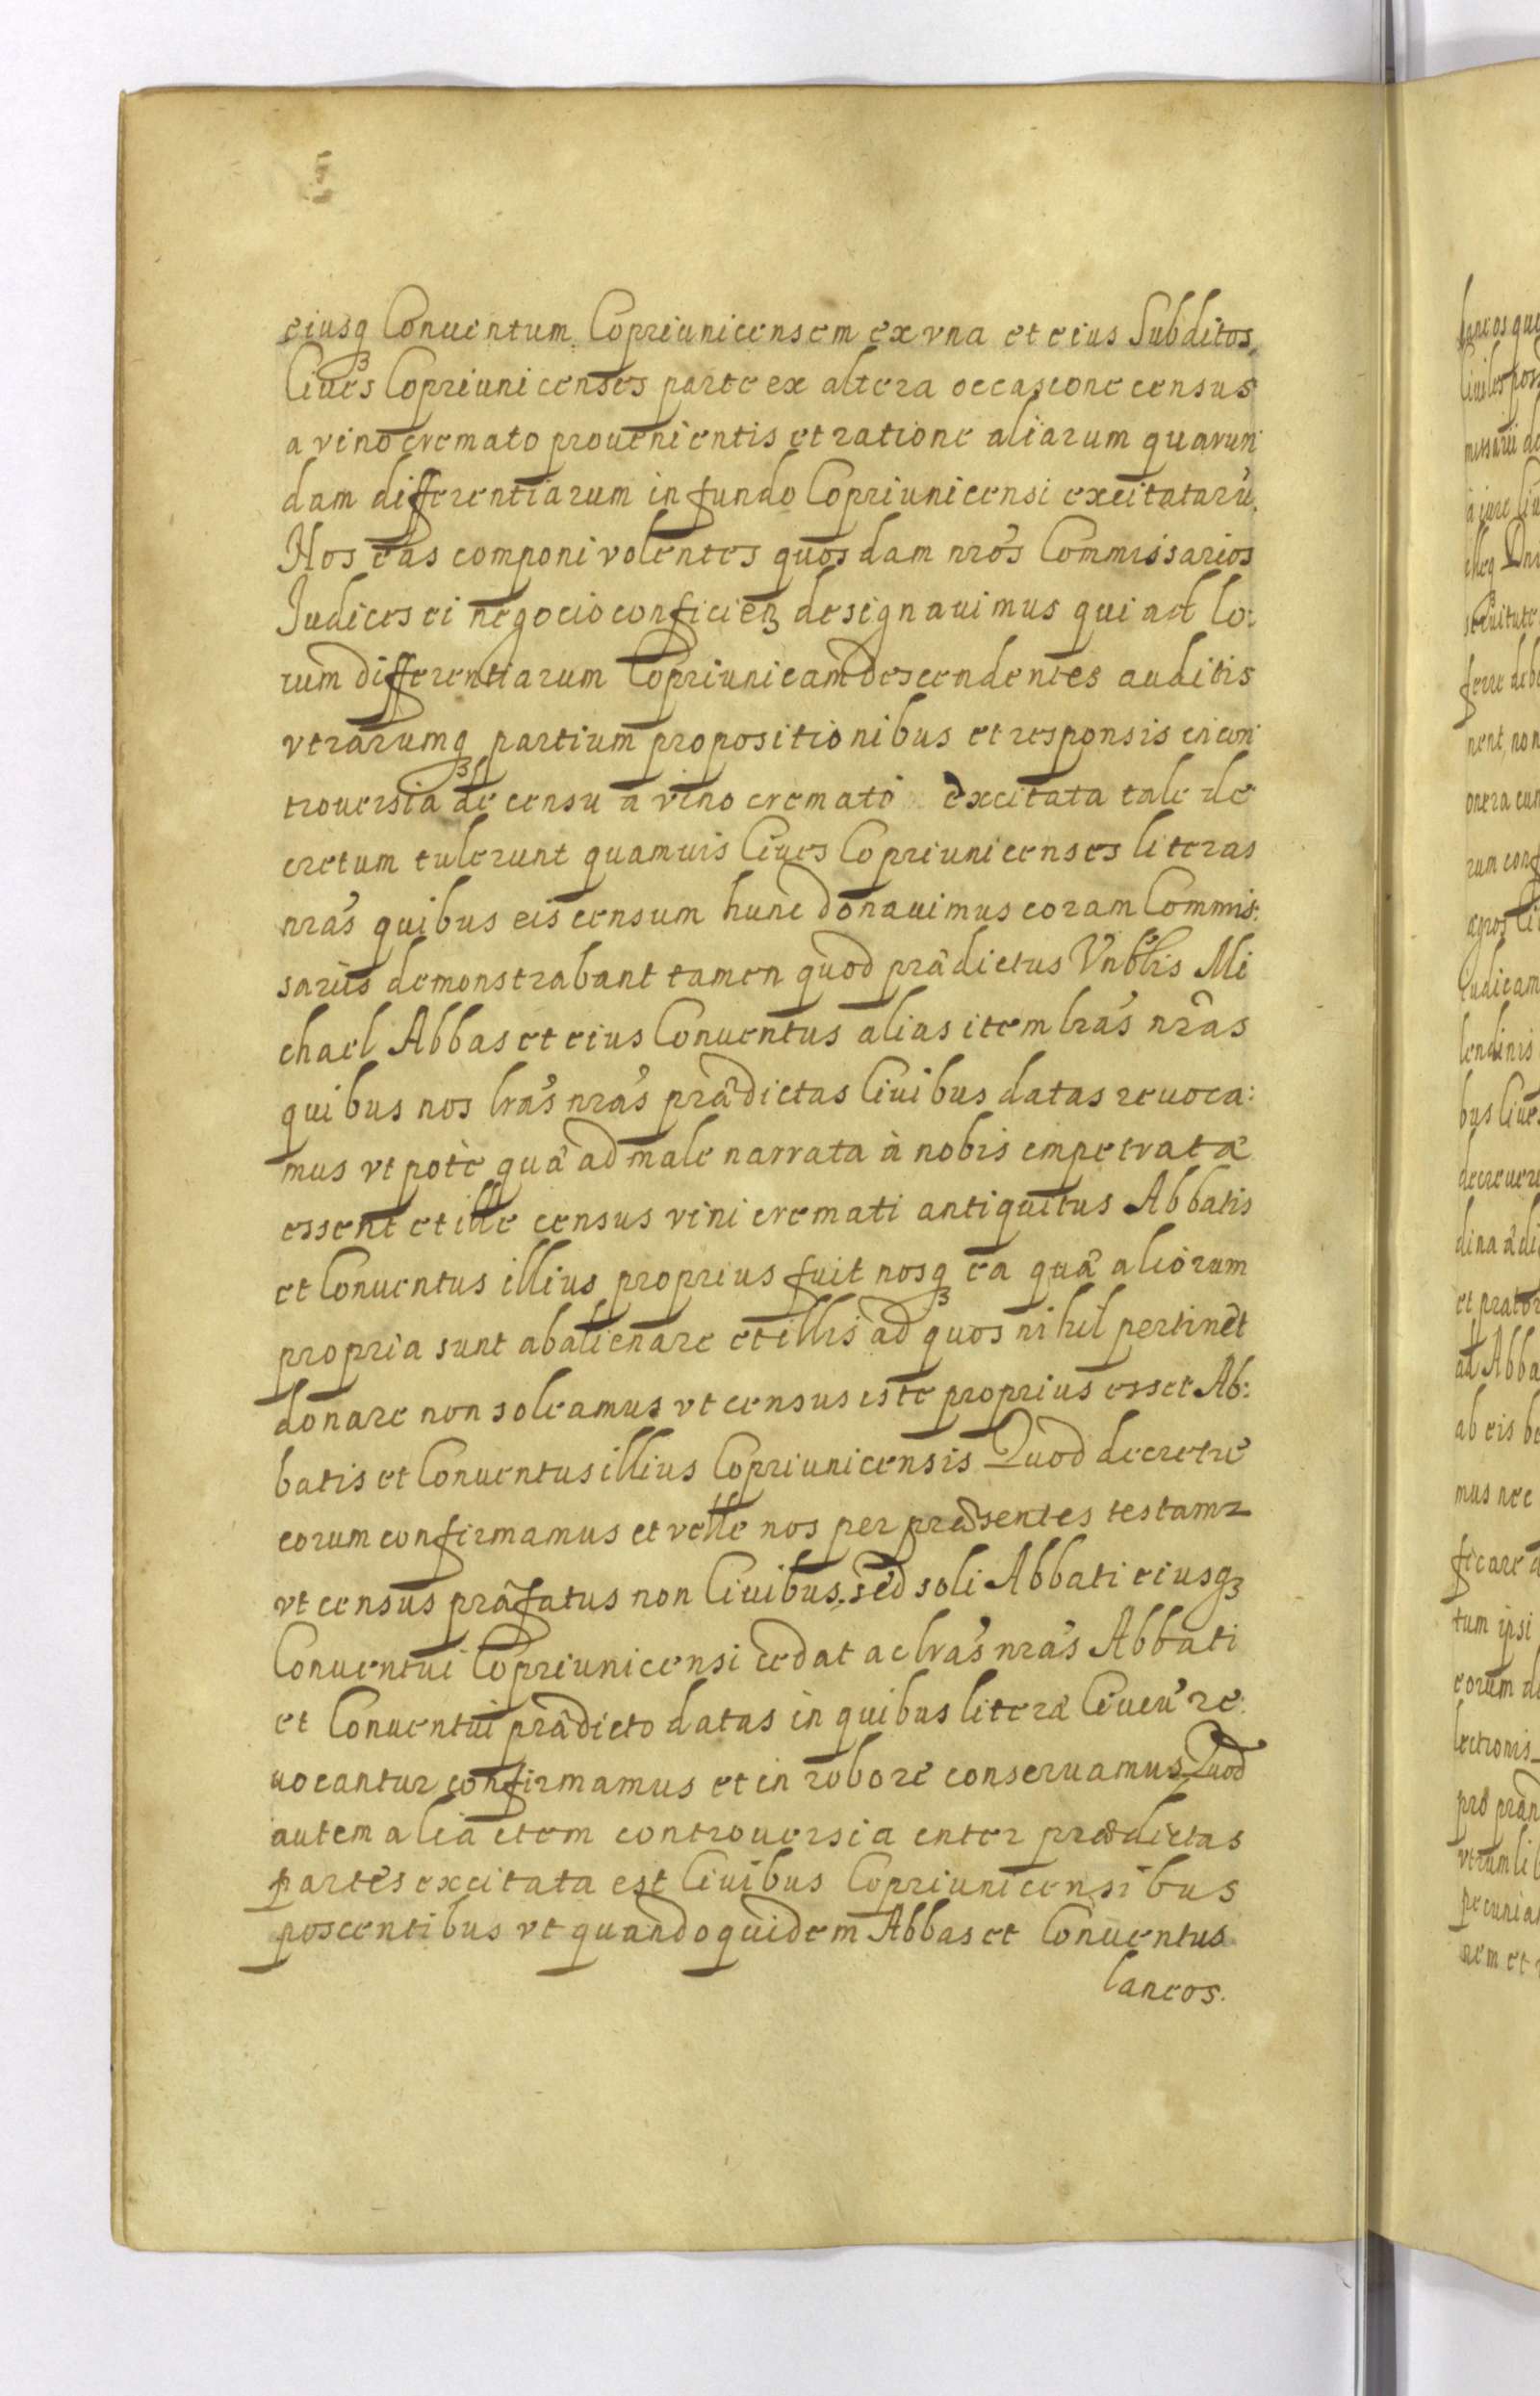 eiusqꝫ Conuentum Copriunicensem ex vna et eius Subditos
Ciues Copriunicenses parte ex altera occasione census
a vino cremato prouenientis et ratione aliarum quarun
dam differentiarum in fundo Copriunicensi excitatarū.
Nos eas componi volentes quosdam nrōs Commissarios
Judices ei negocio conficiēꝫ designauimus qui ad lo:
rum differentiarum Copriunicam descendentes auditis
vtrarumqꝫ partium propositionibus et responsis in con
trouersia de censu a vino cremato excitata tale de
cretum tulerunt quamuis Ciues Copriunicenses literas
nrās quibus eis censum hunc donauimus coram Commis:
sarijs demonstrabant tamen quod prædictus Vnblīs Mi
chael Abbas et eius Conuentus alias item lrās nrās
quibus nos lrās nrās prædictas Ciuibus datas reuoca:
mus vt potè quæ ad male narrata à nobis impetratæ
essent et ille census vini cremati antiquitus Abbatis
et Conuentus illius proprius fuit nosqꝫ ea quæ aliorum
propria sunt abalienare et illis ad quos nihil pertinēt
donare non soleamus vt census iste proprius esset Ab:
batis et Conuentus illius Copriunicensis Quod decretū
eorum confirmamus et velle nos per præsentes testamr
vt census præfatus non Ciuibus, sed soli Abbati eiusqꝫ
Conuentui Copriunicensi cedat ac lrās nrās Abbati
et Conuentui prædicto datas in quibus literæ Ciuiū re:
uocantur confirmamus et in robore conseruamus Quod
autem alia item controuersia inter prædictas
partes excitata est Ciuibus Copriunicensibus
poscentibus vt quandoquidem Abbas et Conuentus
laneos.